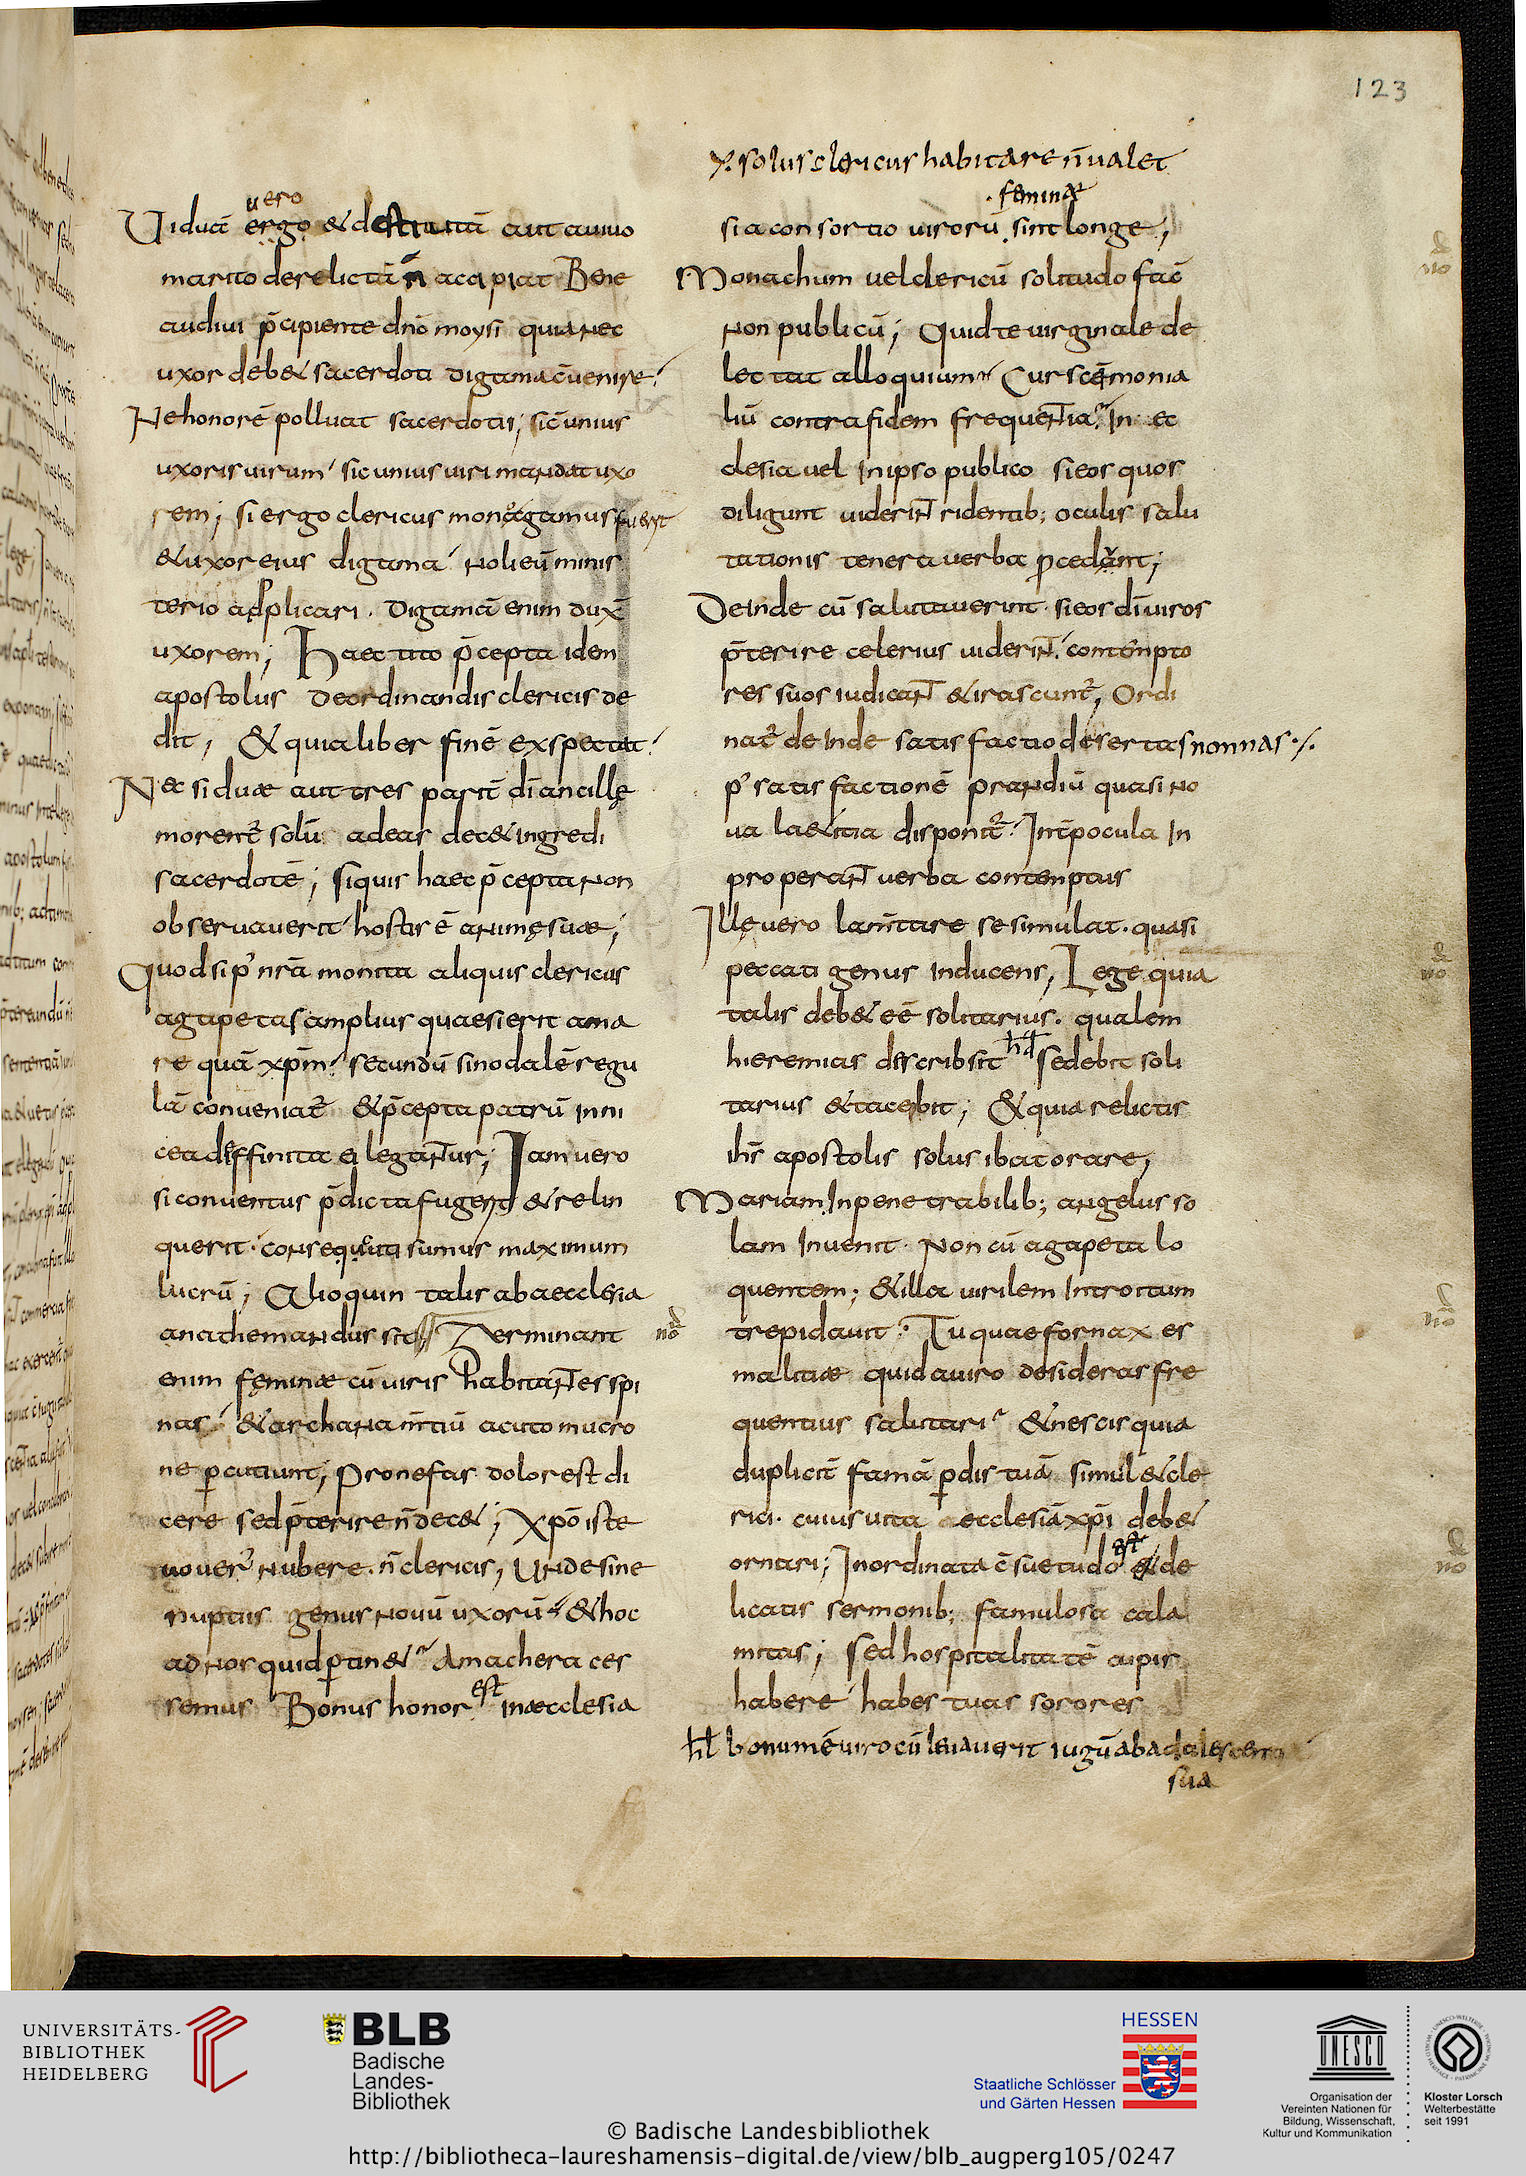 123
uero
Uiduā ergo & destitutā aut a uiuo
marito derelictā ñ accipiat Bene
audiui p̄cipiente dnō moysi quia nec
uxor deb& sacerdoti digama c̄uenire
Ne honorē polluat sacerdotis; sic unius
uxoris uirum sic unius uiri mandat uxo
rem; si ergo clericus monogamus fuerit
& uxor eius digama noli eū minis
terio adplicari. digamā enim dux̄
uxorem; Haec tito p̄cepta idem
apostolus de ordinandis clericis de
dit; & quia liber finē exspectat
Nec si duae aut tres parit̄ dī ancillę
morent̄ solū ad eas dec& ingredi
sacerdotē; si quis haec p̄cepta non
obseruauerit hostis ē animę suae;
Quod si p' nr̄a monita aliquis clericus
agapetas amplius quaesierit ama
re quā xp̄m secundū sinodalē regu
lā conueniat̄ & p̄cepta patrū in ni
cea diffinita ei legantur; Iam uero
si conuentus p̄dicta fugerit & relin
querit consequuti sumus maximum
lucrū; Alioquin talis ab aecclesia
anathemandus sit Terminant
enim feminae cū uiris habitantes spi
nas & archana m̄tiū acuto mucro
ne percutiunt; pro nefas dolor est di
cere sed p̄terire ñ dec&; xpō iste
nouer̄ nubere. ñ clericis; Unde sine
nuptiis genus nouū uxorū & hoc
ad nos quid ptin& A machera ces
semus Bonus honor est in aecclesia
solus clericus habitare ñ ualet
feminae
si a consortio uirorū sint longe;
Monachum uel clericū solitudo fac̄
non publicū; Quid te uirginale de
lectat alloquium Cur sc̄emonia
liū contra fidem frequentia In ec
clesia uel in ipso publico si eos quos
diligunt uiderint ridentib; oculis salu
tationis tenera uerba pcedunt;
Deinde cū salutauerint si eos dī uiros
p̄terire celerius uiderint contempto
res suos iudicant & irascunt̄; Ordi
nat̄ deinde satisfactio desertas nonnas
p' satisfactionē prandiū quasi no
ua laetitia disponit̄ Int̄ pocula in
properant uerba contemptus
Ille uero lam̄tare se simulat. quasi
peccati genus inducens; Lege quia
talis deb& eē solitarius. qualem
hieremias describsit hd sedebit soli
tarius & tacebit; & quia relictis
ihs̄ apostolis solus ibat orare;
Mariam in penetrabilib; angelus so
lam inuenit Non cū agapeta lo
quentem; & illa uirilem introitum
trepidauit. Tu quae fornax es
malitiae quid a uiro desideras fre
quentius salutari & nescis quia
duplicit̄ famā pdis tuā simul & cle
rici. cuius uita aecclesiā xp̄i deb&
ornari; Inordinata c̄suetudo est & de
licatis sermonib; famulosa cala
mitas; sed hospitalitatē cupis
habere habes tuas sorores
hl bonum ē uiro cū leuauerit iugū ab adolescentia
sua
UNIVERSITÄTS-
BIBLIOTHEK
HEIDELBERG
BLB
Badische
Landes-
Bibliothek
HESSEN
Staatliche Schlösser
und Gärten Hessen
UNESCO
Organisation der
Vereinten Nationen für
Bildung, Wissenschaft,
Kultur und Kommunikation
Kloster Lorsch
Welterbestätte
seit 1991
© Badische Landesbibliothek
http://bibliotheca-laureshamensis-digital.de/view/blb_augperg105/0247